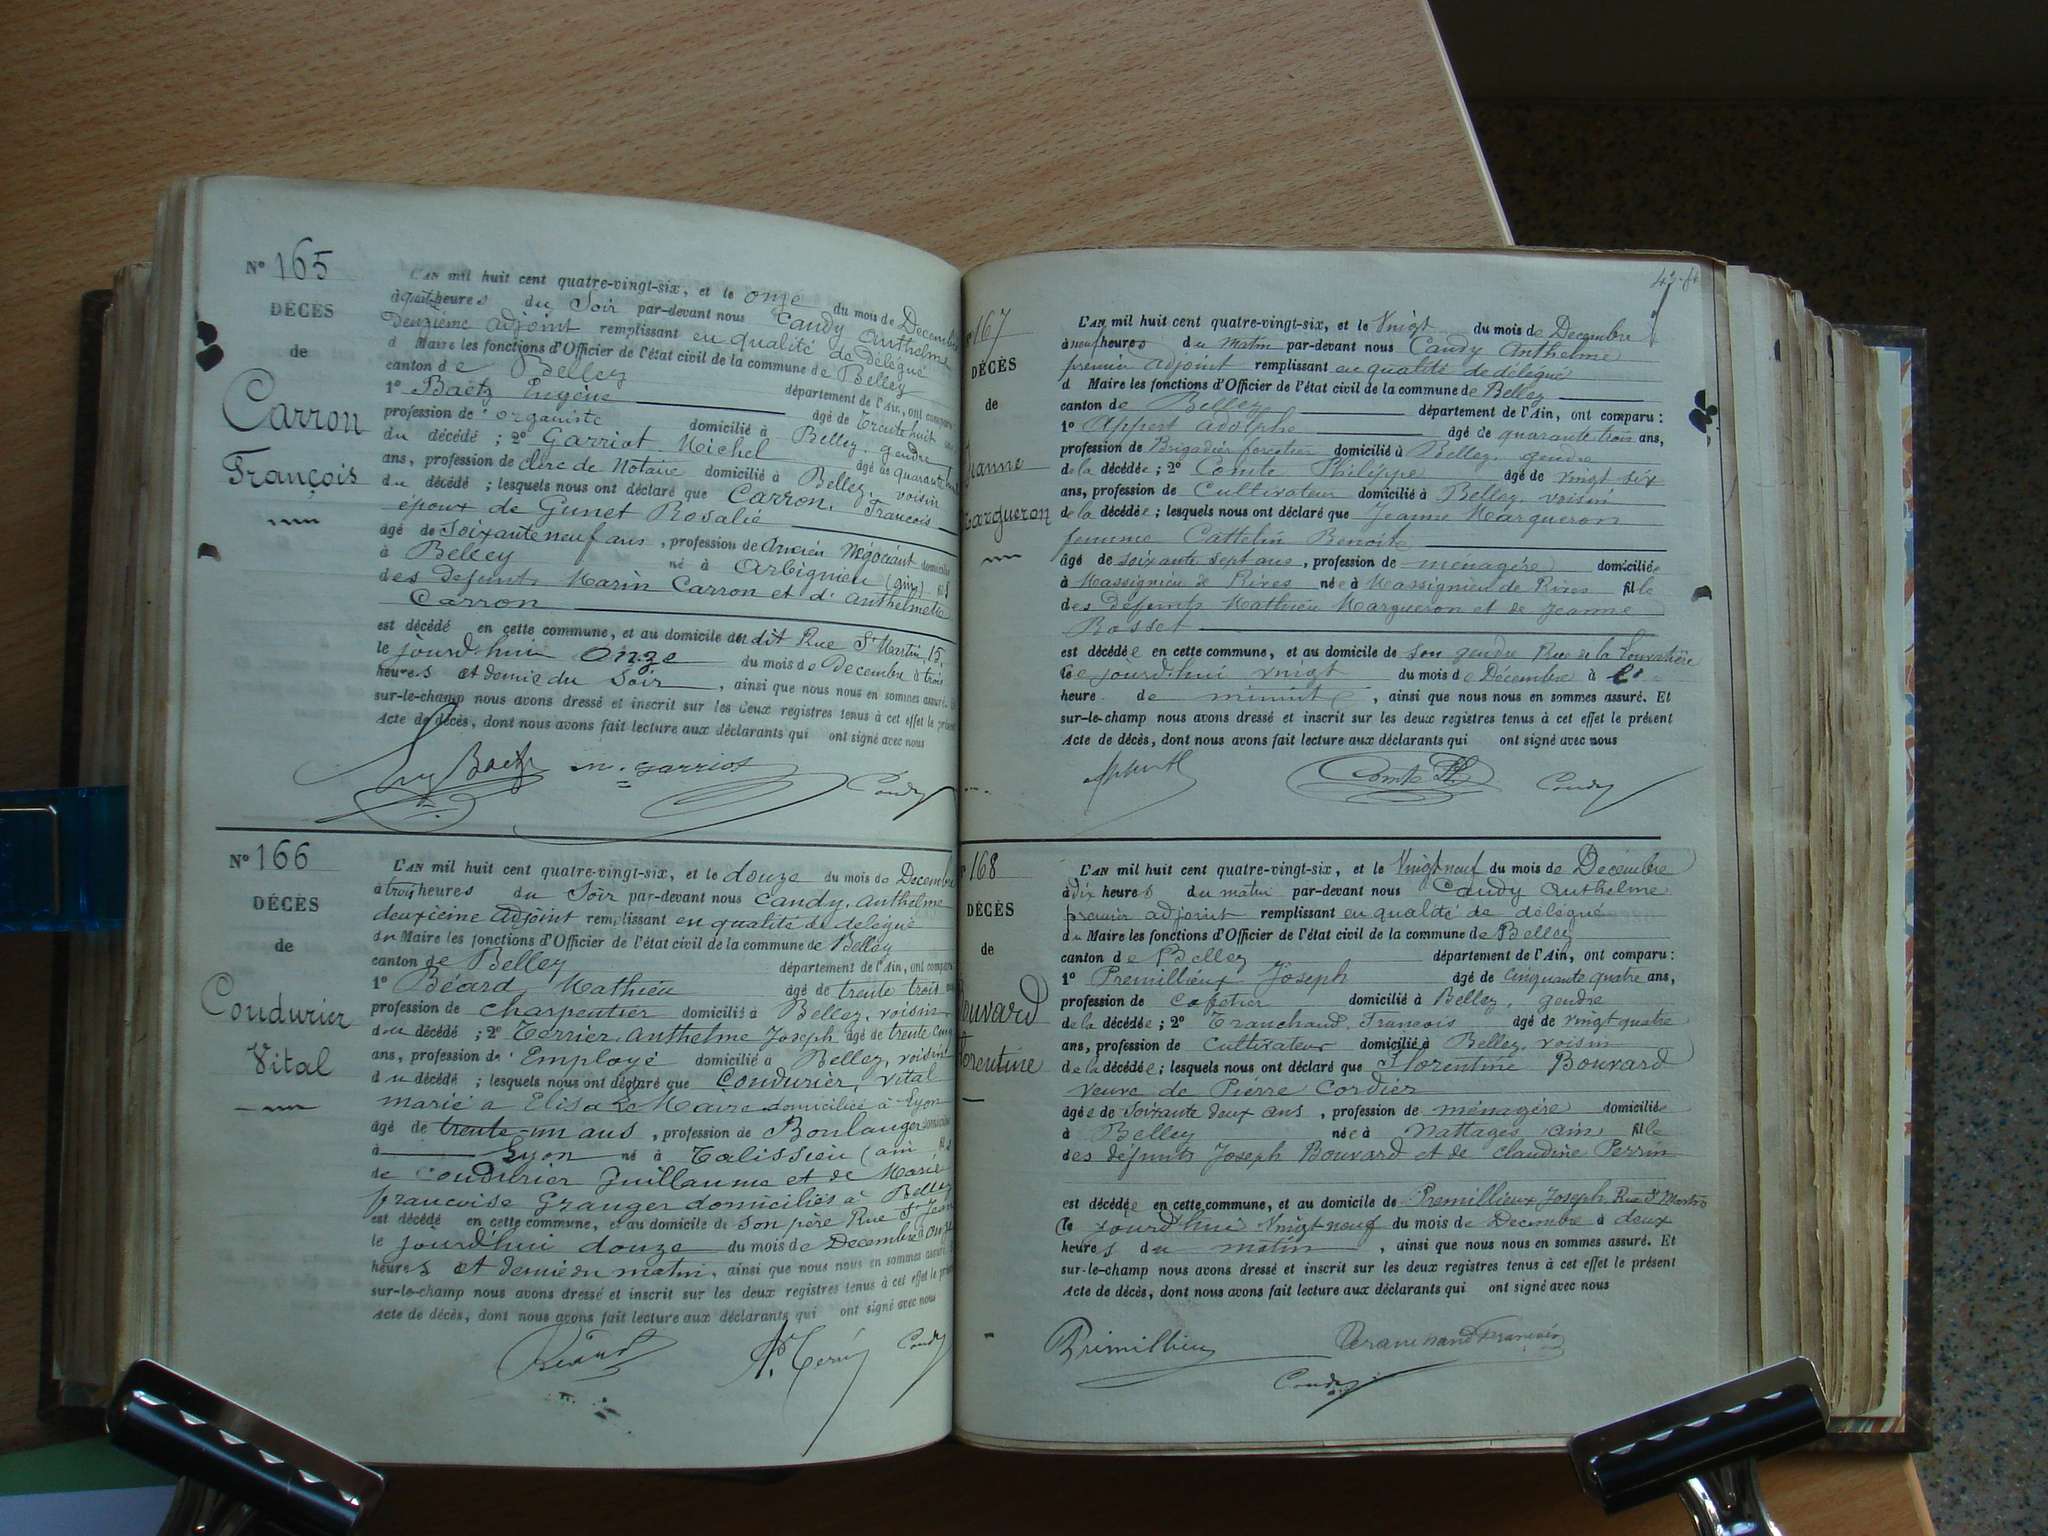 N° 165
DÉCÈS
de
Carron
François
L'AN mil huit cent quatre-vingt-six, et le onze du mois de Décembre
à quatre heures du Soir par-devant nous Caudy Anthelme
Deuxième adjoint remplissant en qualité de Délégué
d Maire les fonctions d'Officier de l'état civil de la commune de Belley
canton de Belley département de l'Ain, ont comparu
1° Baëtz Eugène âgé de Trente huit ans
profession de organiste domicilié à Belley, gendre
du décédé ; 2° Garriot Michel âgé de quarante
ans, profession de clerc de Notaire domicilié à Belley, voisin
du décédé ; lesquels nous ont déclaré que Carron, François
époux de Gunet Rosalie
âgé de soixante neuf ans, profession de Ancien Négociant domicilié
à Belley né à Arbignieu (ain) fils
des Défunts Marin Carron et d' Anthelmette
Carron
est décédé en cette commune, et au domicile du dit Rue St Martin, 15,
le jourd'hui onze du mois de Décembre à trois
heures et demie du Soir, ainsi que nous nous en sommes assuré. Et
sur-le-champ nous avons dressé et inscrit sur les deux registres tenus à cet effet le présent
Acte de décès, dont nous avons fait lecture aux déclarants qui ont signé avec nous
Eug Baetz m. garriot Caudy
N° 166
DÉCÈS
de
Coudurier
Vital
L'AN mil huit cent quatre-vingt-six, et le douze du mois de Décembre
à trois heures du Soir par-devant nous Caudy, Anthelme
deuxième Adjoint remplissant en qualité de délégué
du Maire les fonctions d'Officier de l'état civil de la commune de Belley
canton de Belley département de l'Ain, ont comparu
1° Béard Mathieu âgé de trente trois ans
profession de charpentier domicilié à Belley, voisin
du décédé ; 2° Terrier Anthelme Joseph âgé de trente cinq
ans, profession de Employé domicilié à Belley, voisin
du décédé ; lesquels nous ont déclaré que Coudurier, Vital
marié a Elisa Le Maire domiciliée à Lyon
âgé de trente-un ans, profession de Boulanger domicilié
à Lyon né à Talissieu (ain fils
de Coudurier Guillaume et de Marie
françoise Granger domiciliés à Belley
est décédé en cette commune, et au domicile de son père Rue St Jean
le jourd'hui douze du mois de Décembre à onze
heures et demie du matin, ainsi que nous nous en sommes assuré. Et
sur-le-champ nous avons dressé et inscrit sur les deux registres tenus à cet effet le présent
Acte de décès, dont nous avons fait lecture aux déclarants qui ont signé avec nous
Béard Caudy
167
DÉCÈS
de
Jeanne
Margueron
L'AN mil huit cent quatre-vingt-six, et le Vingt du mois de Décembre
à neuf heures du matin par-devant nous Caudy Anthelme
premier adjoint remplissant en qualité de délégué
d Maire les fonctions d'Officier de l'état civil de la commune de Belley
canton de Belley département de l'Ain, ont comparu :
1° Appert Adolphe âgé de quarante trois ans,
profession de Brigadier forestier domicilié à Belley, gendre
de la décédée ; 2° Comte Philippe âgé de vingt six
ans, profession de Cultivateur domicilié à Belley, voisin
de la décédée ; lesquels nous ont déclaré que Jeanne Margueron
femme Cattelin Benoît
âgé de soixante sept ans, profession de ménagère domiciliée
à Massignieu de Rives née à Massignieu de Rives fille
des Défunts Mathieu Margueron et de Jeanne
Rosset
est décédée en cette commune, et au domicile de son gendre Rue de la
le jourd'hui vingt du mois de Décembre à
heure de minuit, ainsi que nous nous en sommes assuré. Et
sur-le-champ nous avons dressé et inscrit sur les deux registres tenus à cet effet le présent
Acte de décès, dont nous avons fait lecture aux déclarants qui ont signé avec nous
Comte Ph Caudy
168
DÉCÈS
de
Bouvard
Florentine
L'AN mil huit cent quatre-vingt-six, et le Vingt neuf du mois de Décembre
à dix heures du matin par-devant nous Caudy Anthelme
premier adjoint remplissant en qualité de délégué
du Maire les fonctions d'Officier de l'état civil de la commune de Belley
canton de Belley département de l'Ain, ont comparu :
1° Premillieux Joseph âgé de cinquante quatre ans,
profession de cafetier domicilié à Belley, gendre
de la décédée ; 2° Tranchand, François âgé de vingt quatre
ans, profession de Cultivateur domicilié à Belley, voisin
de la décédée ; lesquels nous ont déclaré que Florentine Bouvard
veuve de Pierre Cordier
âgée de soixante deux ans, profession de ménagère domiciliée
à Belley née à Nattages ain fille
des défunts Joseph Bouvard et de Claudine Perrin
est décédée en cette commune, et au domicile de Premillieux Joseph Rue St Martin
le jourd'hui Vingt neuf du mois de Décembre à deux
heures du matin, ainsi que nous nous en sommes assuré. Et
sur-le-champ nous avons dressé et inscrit sur les deux registres tenus à cet effet le présent
Acte de décès, dont nous avons fait lecture aux déclarants qui ont signé avec nous
Primillieu Tranchand François
Caudy